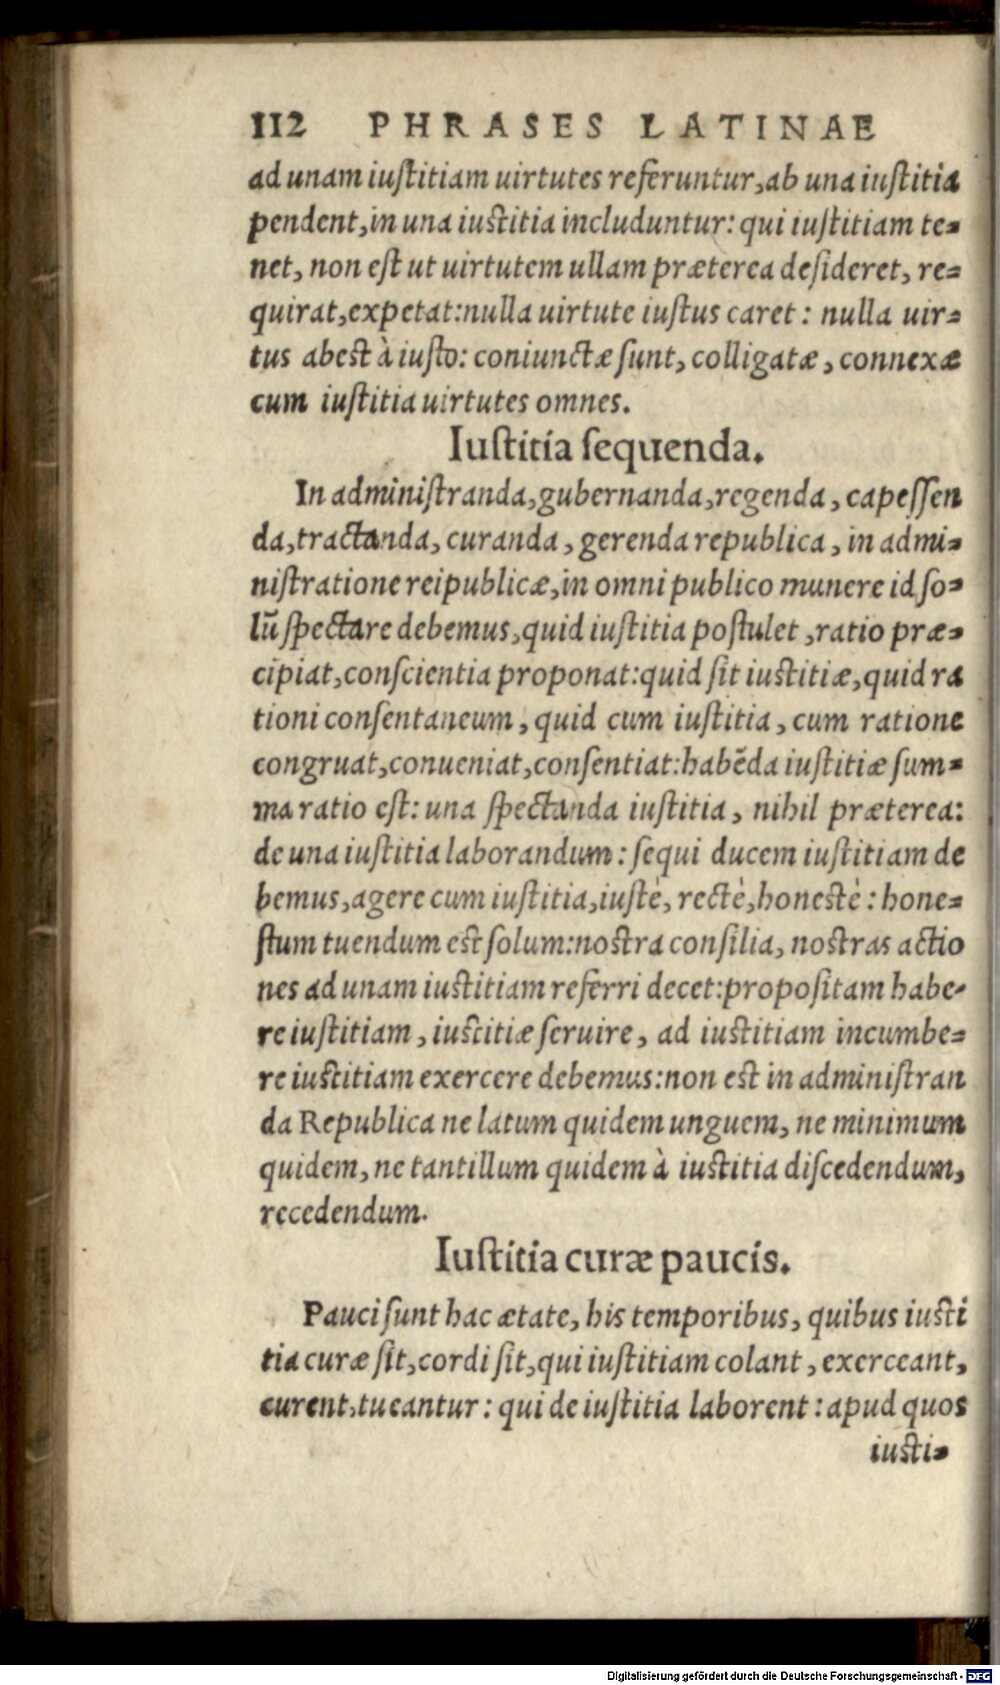 112 PHRASES LATINAE
ad unam iuſtitiam uirtutes referuntur, ab una iuſtitia
pendent, in una iuſtitia includuntur: qui iuſtitiam te⸗
net, non eſt ut uirtutem ullam præterea deſideret, re⸗
quirat, expetat: nulla uirtute iuſtus caret: nulla uir⸗
tus abest à iuſto: coniunctæ ſunt, colligatæ, connexæ
cum iuſtitia uirtutes omnes.
Iuſtitia ſequenda.
In adminiſtranda, gubernanda, regenda, capeſſen
da, tractanda, curanda, gerenda republica, in admi⸗
niſtratione reipublicæ, in omni publico munere id ſo⸗
lũ ſpectare debemus, quid iuſtitia poſtulet, ratio præ⸗
cipiat, conſcientia proponat: quid ſit iustitiæ, quid ra
tioni conſentaneum, quid cum iuſtitia, cum ratione
congruat, conueniat, conſentiat: habẽda iuſtitiæ ſum⸗
ma ratio eſt: una ſpectanda iuſtitia, nihil præterea:
de una iuſtitia laborandum: ſequi ducem iuſtitiam de
bemus, agere cum iuſtitia, iustè, rectè, honestè: hone⸗
ſtum tuendum est ſolum: nostra conſilia, nostras actio
nes ad unam iustitiam referri decet: propoſitam habe⸗
re iuſtitiam, iustitiæ ſeruire, ad iustitiam incumbe⸗
re iustitiam exercere debemus: non est in adminiſtran
da Republica ne latum quidem unguem, ne minimum
quidem, ne tantillum quidem à iustitia diſcedendum,
recedendum.
Iuſtitia curæ paucis.
Pauci ſunt hac ætate, his temporibus, quibus iusti
tia curæ ſit, cordi ſit, qui iuſtitiam colant, exerceant,
curent, tueantur: qui de iuſtitia laborent: apud quos
iusti⸗
Digitalisierung gefördert durch die Deutsche Forschungsgemeinschaft - DFG